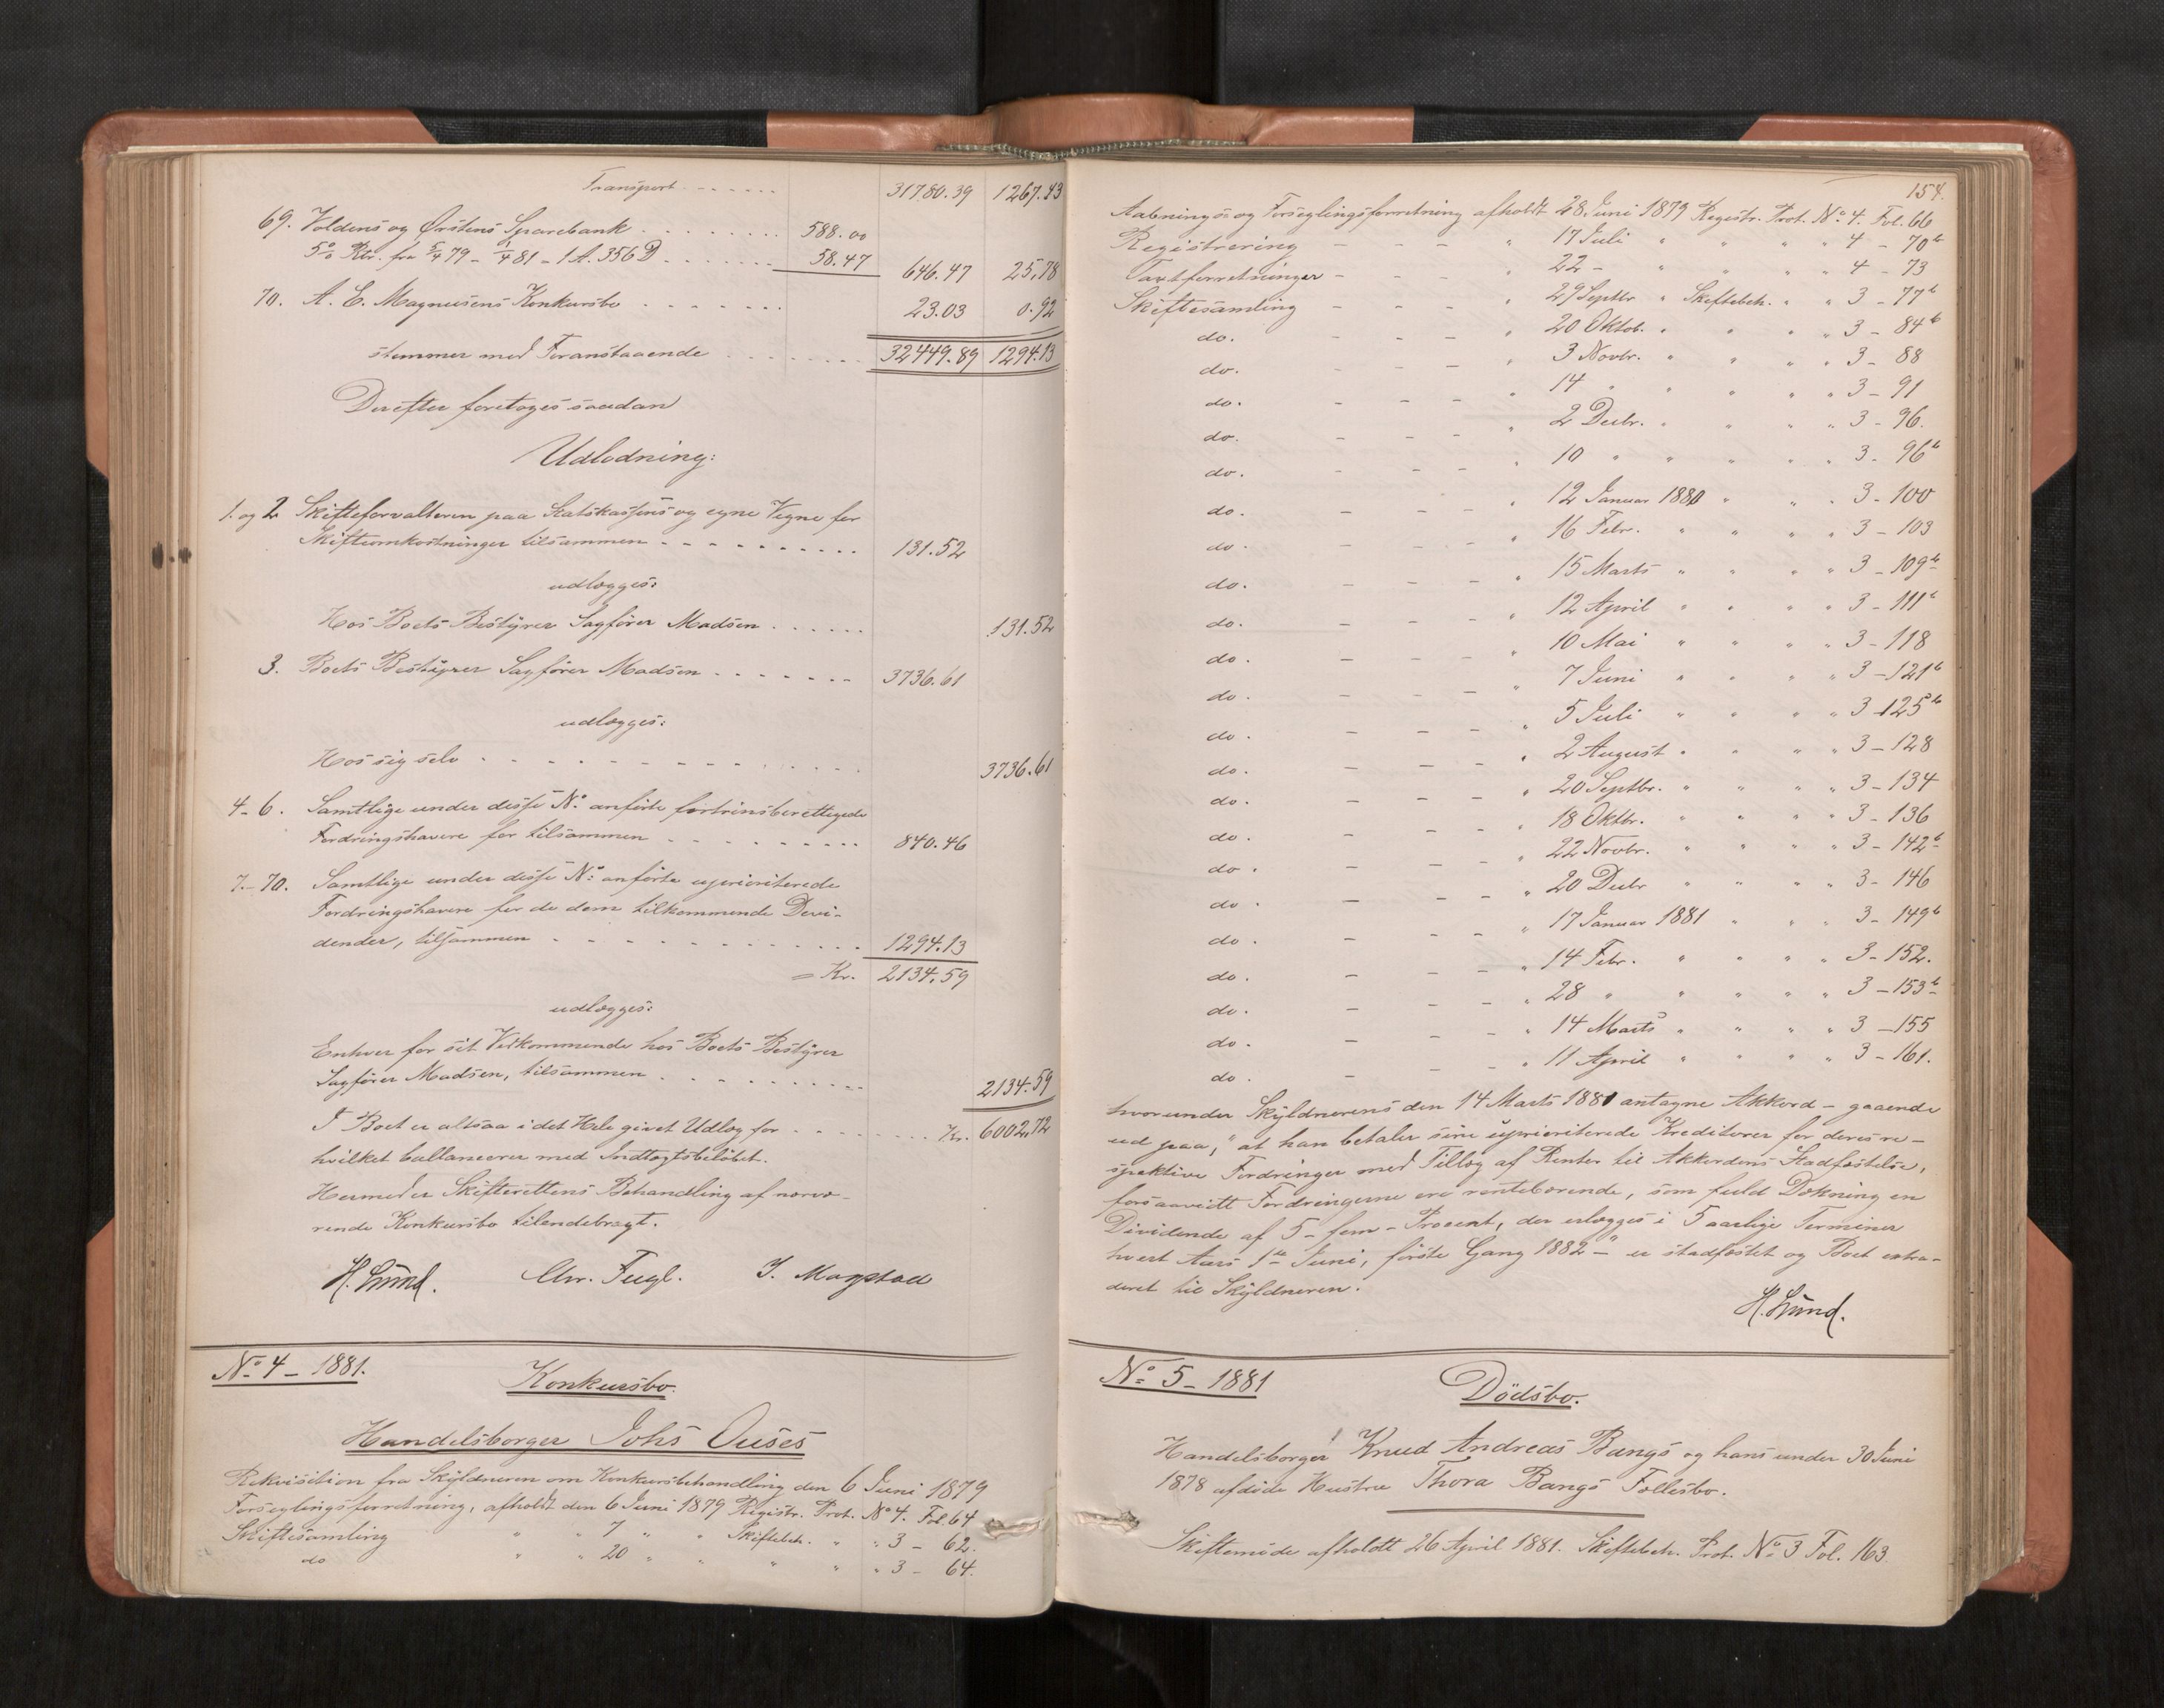 Transport 31780.39 1267.43
69. Voldens og Ørstens Sparebank 588.00
5% Rtr. fra 5/4 79 - 1/4 81 - 1 A. 356 D 58.47 646.47 25.78
70. A. E. Magnusens Konkursbo 23.03 0.92
stemmer med Foranstaaende 32449.89 1294.13
Derefter foretoges saadan
Udlodning:
1. og 2. Skifteforvalteren paa Statskassens og egne Vegne for
Skifteomkostninger tilsammen 131.52
udlægges:
Hos Boets Bestyrer Sagfører Madsen 131.52
3. Boets Bestyrer Sagfører Madsen 3736.61
udlægges:
Hos sig selv 3736.61
4-6. Samtlige under disse No. anførte fortrinsberettigede
Fordringshavere for tilsammen 840.46
7-70. Samtlige under disse No: anførte uprioriterede
Fordringshavere for de dem tilkommende Divi-
dender, tilsammen 1294.13
= Kr. 2134.59
udlægges:
Enhver for sit Vedkommende hos Boets Bestyrer
Sagfører Madsen, tilsammen 2134.59
I Boet er altsaa i det Hele givet Udlæg for Kr. 6002.72
hvilket ballancerer med Indtægtsbeløbet.
Hermed er Skifterettens Behandling af nærvæ-
rende Konkursbo tilendebragt.
H. Lund. Chr. Fugl. J. Mogstad
No 4 - 1881.
Konkursbo.
Handelsborger Johs Ouses
Rekvisition fra Skyldneren om Konkursbehandling den 6 Juni 1879
Forseglingsforretning, afholdt den 6 Juni 1879 Registr. Prot. No 4. Fol. 64
Skiftesamling " " 7 " " Skiftebeh. " " 3 - 62.
do " " 20 " " " " " 3 - 64.
154.
Aabnings og Forseglingsforretning afholdt 28 Juni 1879 Registr. Prot. No. 4. Fol. 66
Registrering - - - " 17 Juli " " " " 4 - 70b
Taxtforretninger - - - " 22 - " " " " 4 - 73
Skiftesamling - - - " 29 Septbr " Skiftebeh. " " 3 - 77b
do. - - - " 20 Oktob. " " " " 3 - 84b
do. - - - " 3 Novbr. " " " " 3 - 88
do. - - - " 14 " " " " " 3 - 91
do. - - - " 2 Decbr. " " " " 3 - 96.
do. - - - " 10 " " " " " 3 - 96b
do. - - - " 12 Januar 1880 " " " 3 - 100
do. - - - " 16 Febr. " " " " 3 - 103
do. - - - " 15 Marts " " " " 3 - 109b
do. - - - " 12 April " " " " 3 - 111b
do. - - - " 10 Mai " " " " 3 - 118
do. - - - " 7 Juni " " " " 3 - 121b
do. - - - " 5 Juli " " " " 3 125b
do. - - - " 2 August " " " " 3 - 128
do. - - - " 20 Septbr. " " " " 3 - 134
do. - - - " 18 Oktbr. " " " " 3 - 136
do. - - - " 22 Novbr. " " " " 3 - 142b
do. - - - " 20 Decbr " " " " 3 - 146
do. - - - " 17 Januar 1881 " " " 3 - 149b
do. - - - " 14 Febr. " " " " 3 - 152.
do. - - - " 28 " " " " " 3 - 153b
do. - - - " 14 Marts " " " " 3 - 155
do. - - - " 11 April " " " " 3 - 161.
hvorunder Skyldnerens den 14 Marts 1881 antagne Akkord - gaaende
ud paa, "at han betaler sine uprioriterede Kreditorer for deres re-
spektive Fordringer med Tillæg af Renter til Akkordens Stadfæstelse,
forsaavidt Fordringerne ere rentebærende, som fuld Dækning en
Dividende af 5 - fem - Procent, der erlægges i 5 aarlige Terminer
hvert Aars 1ste Juni, første Gang 1882 -" er stadfæstet og Boet extra-
deret til Skyldneren.
H. Lund.
No 5 - 1881
Dödsbo.
Handelsborger Knud Andreas Bangs og hans under 30 Juni
1878 afdøde Hustru Thora Bangs Fællesbo.
Skiftemøde afholdt 26 April 1881. Skiftebeh. Prot. No 3 Fol. 163.